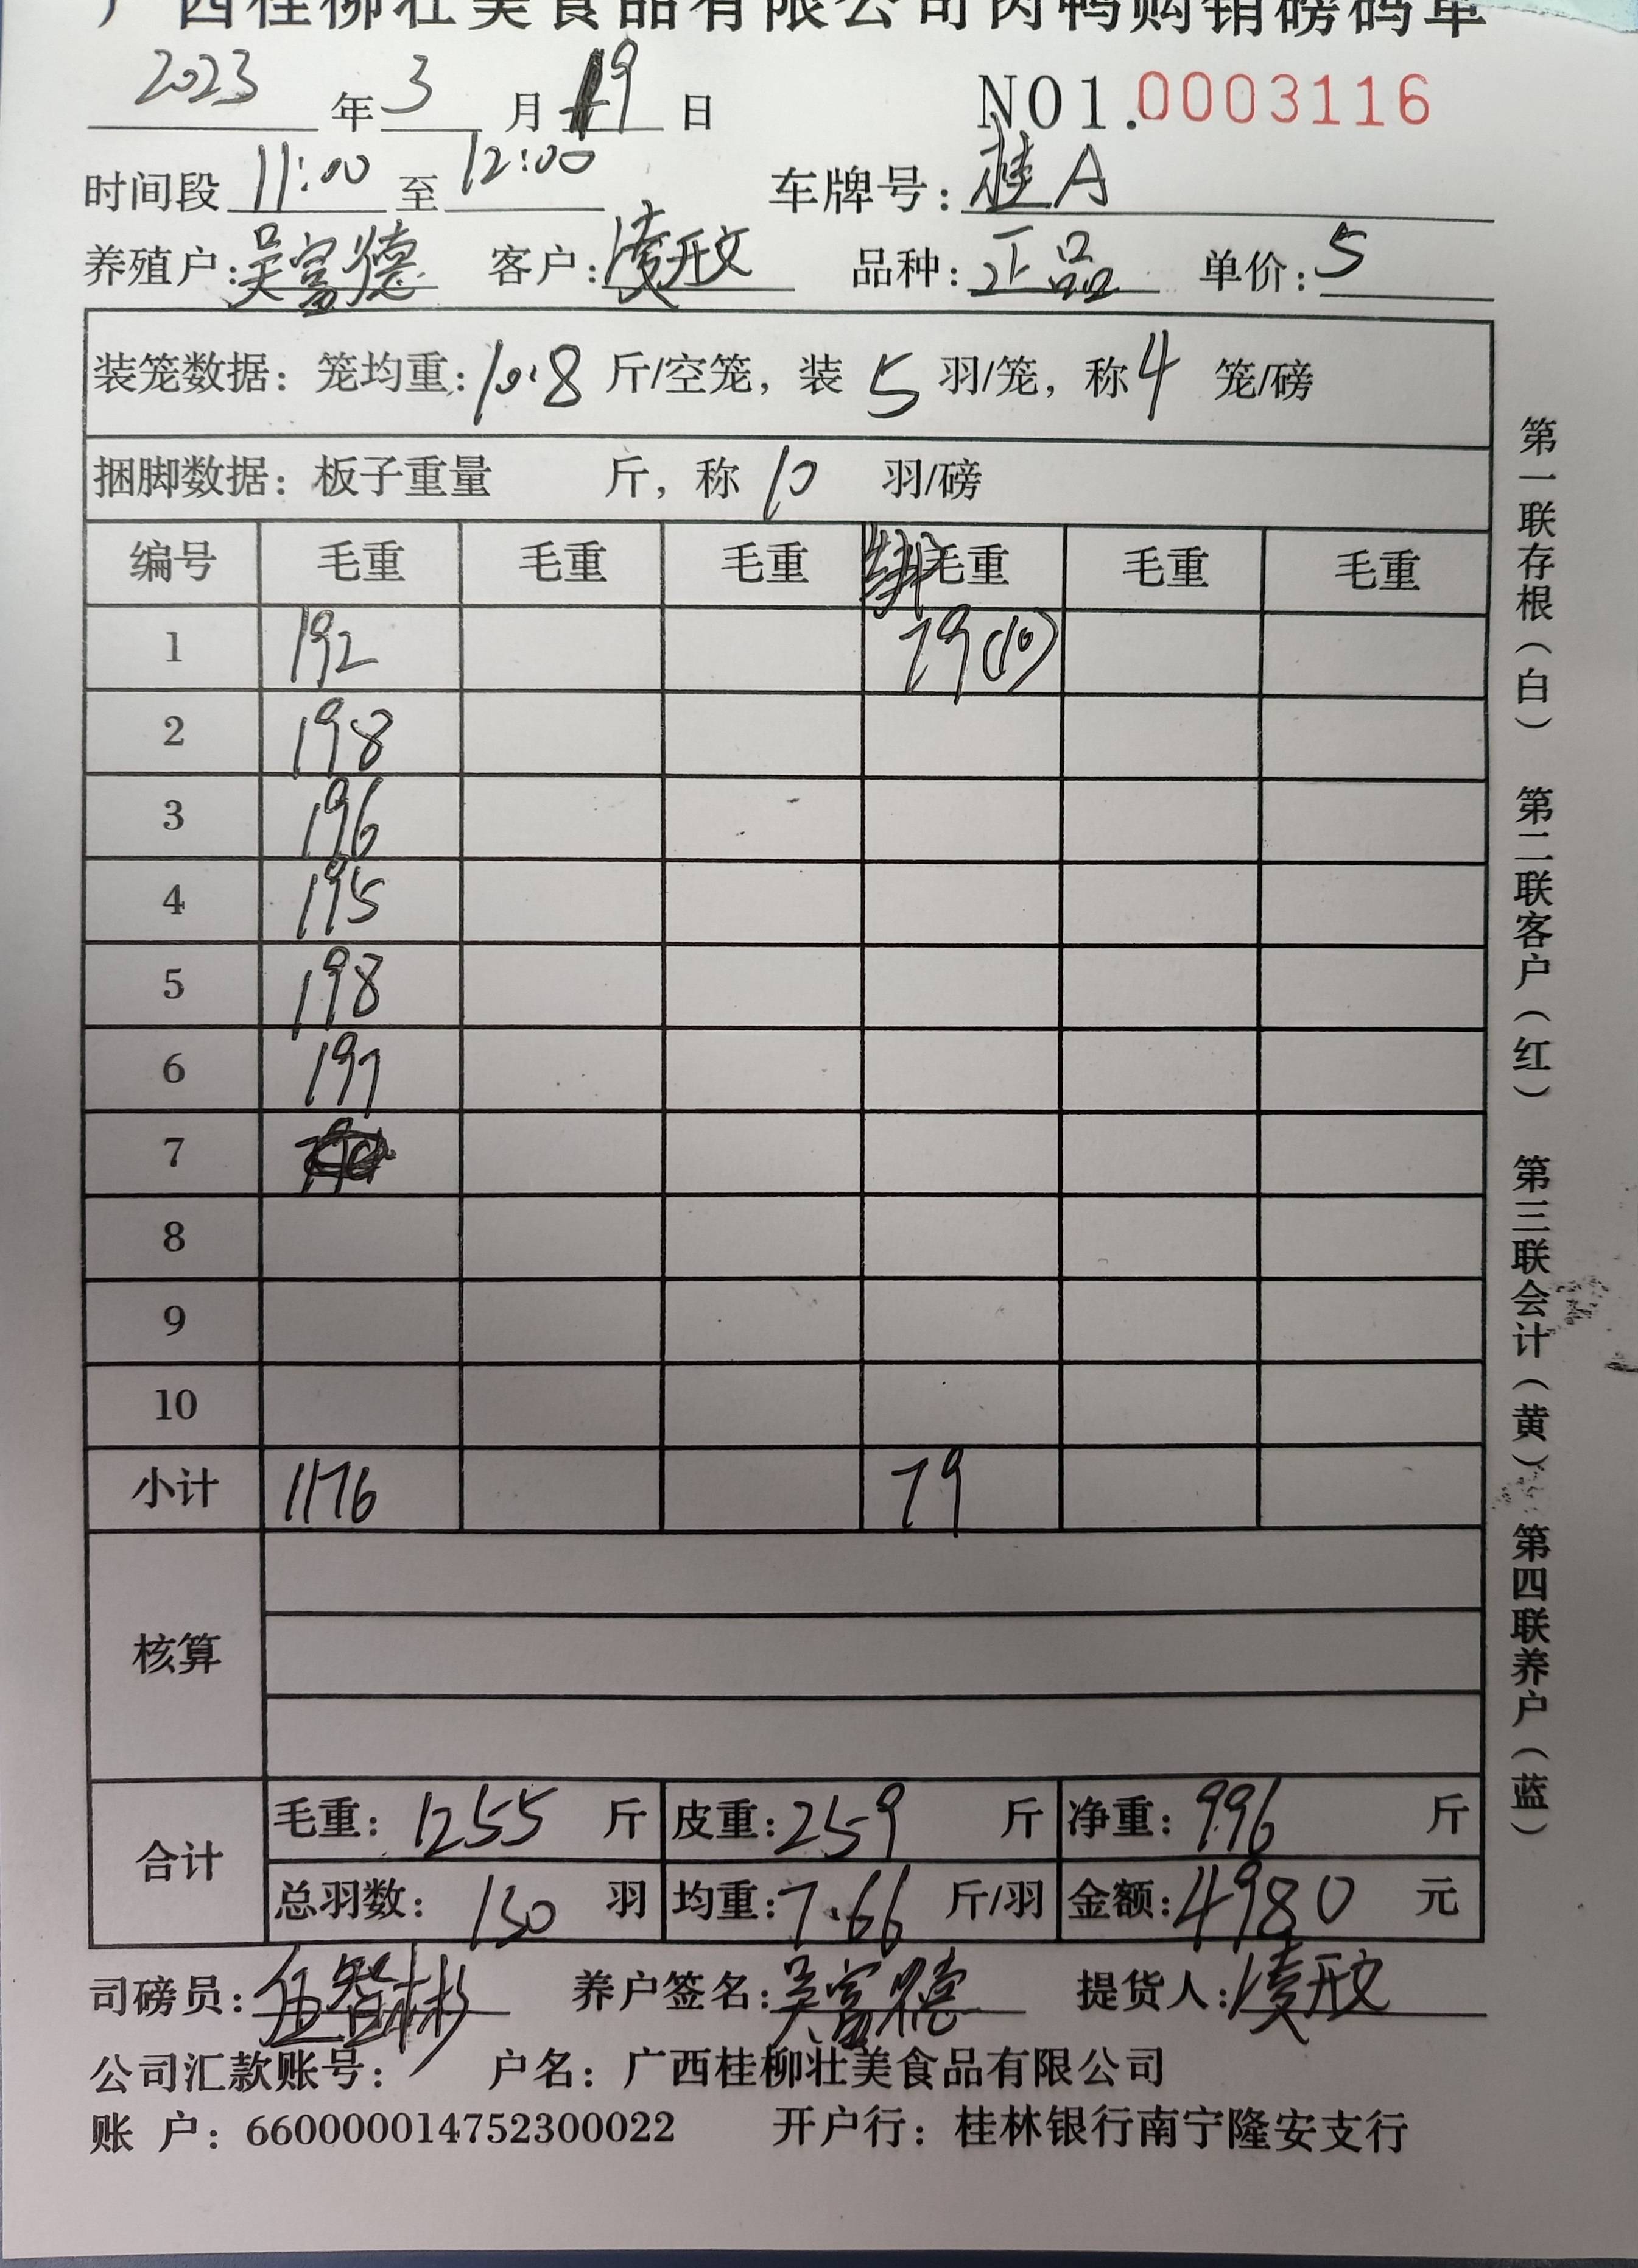 广西桂柳壮美食品有限公司肉鸭购销磅码单
2023 年 3 月 19 日 NO1.0003116
时间段 11:00 至 12:00 车牌号: 桂A
养殖户: 吴富德 客户: 凌开文 品种: 正品 单价: 5
装笼数据: 笼均重: 10.8 斤/空笼, 装 5 羽/笼, 称 4 笼/磅
捆脚数据: 板子重量 斤, 称 10 羽/磅
编号 毛重 毛重 毛重 毛重 毛重 毛重
1 192 79(10)
2 198
3 196
4 195
5 198
6 197
7
8
9
10
小计 1176 79
核算
合计 毛重: 1255 斤 皮重: 259 斤 净重: 996 斤
总羽数: 130 羽 均重: 7.66 斤/羽 金额: 4980 元
司磅员: 伍智彬 养户签名: 吴富德 提货人: 凌开文
公司汇款账号: 户名: 广西桂柳壮美食品有限公司
账 户: 660000014752300022 开户行: 桂林银行南宁隆安支行
第一联存根(白) 第二联客户(红) 第三联会计(黄) 第四联养户(蓝)